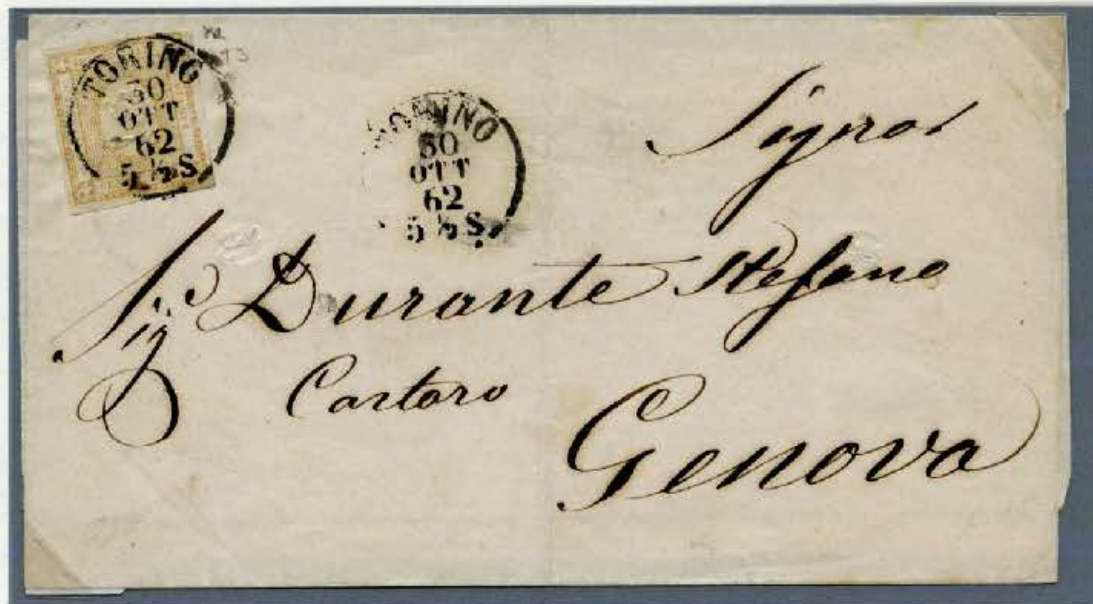 TORINO
30
OTT
62
5 ½ S
TORINO
30
OTT
62
5 ½ S.
Signor
Sig.r Durante Stefano
Cartaro
Genova